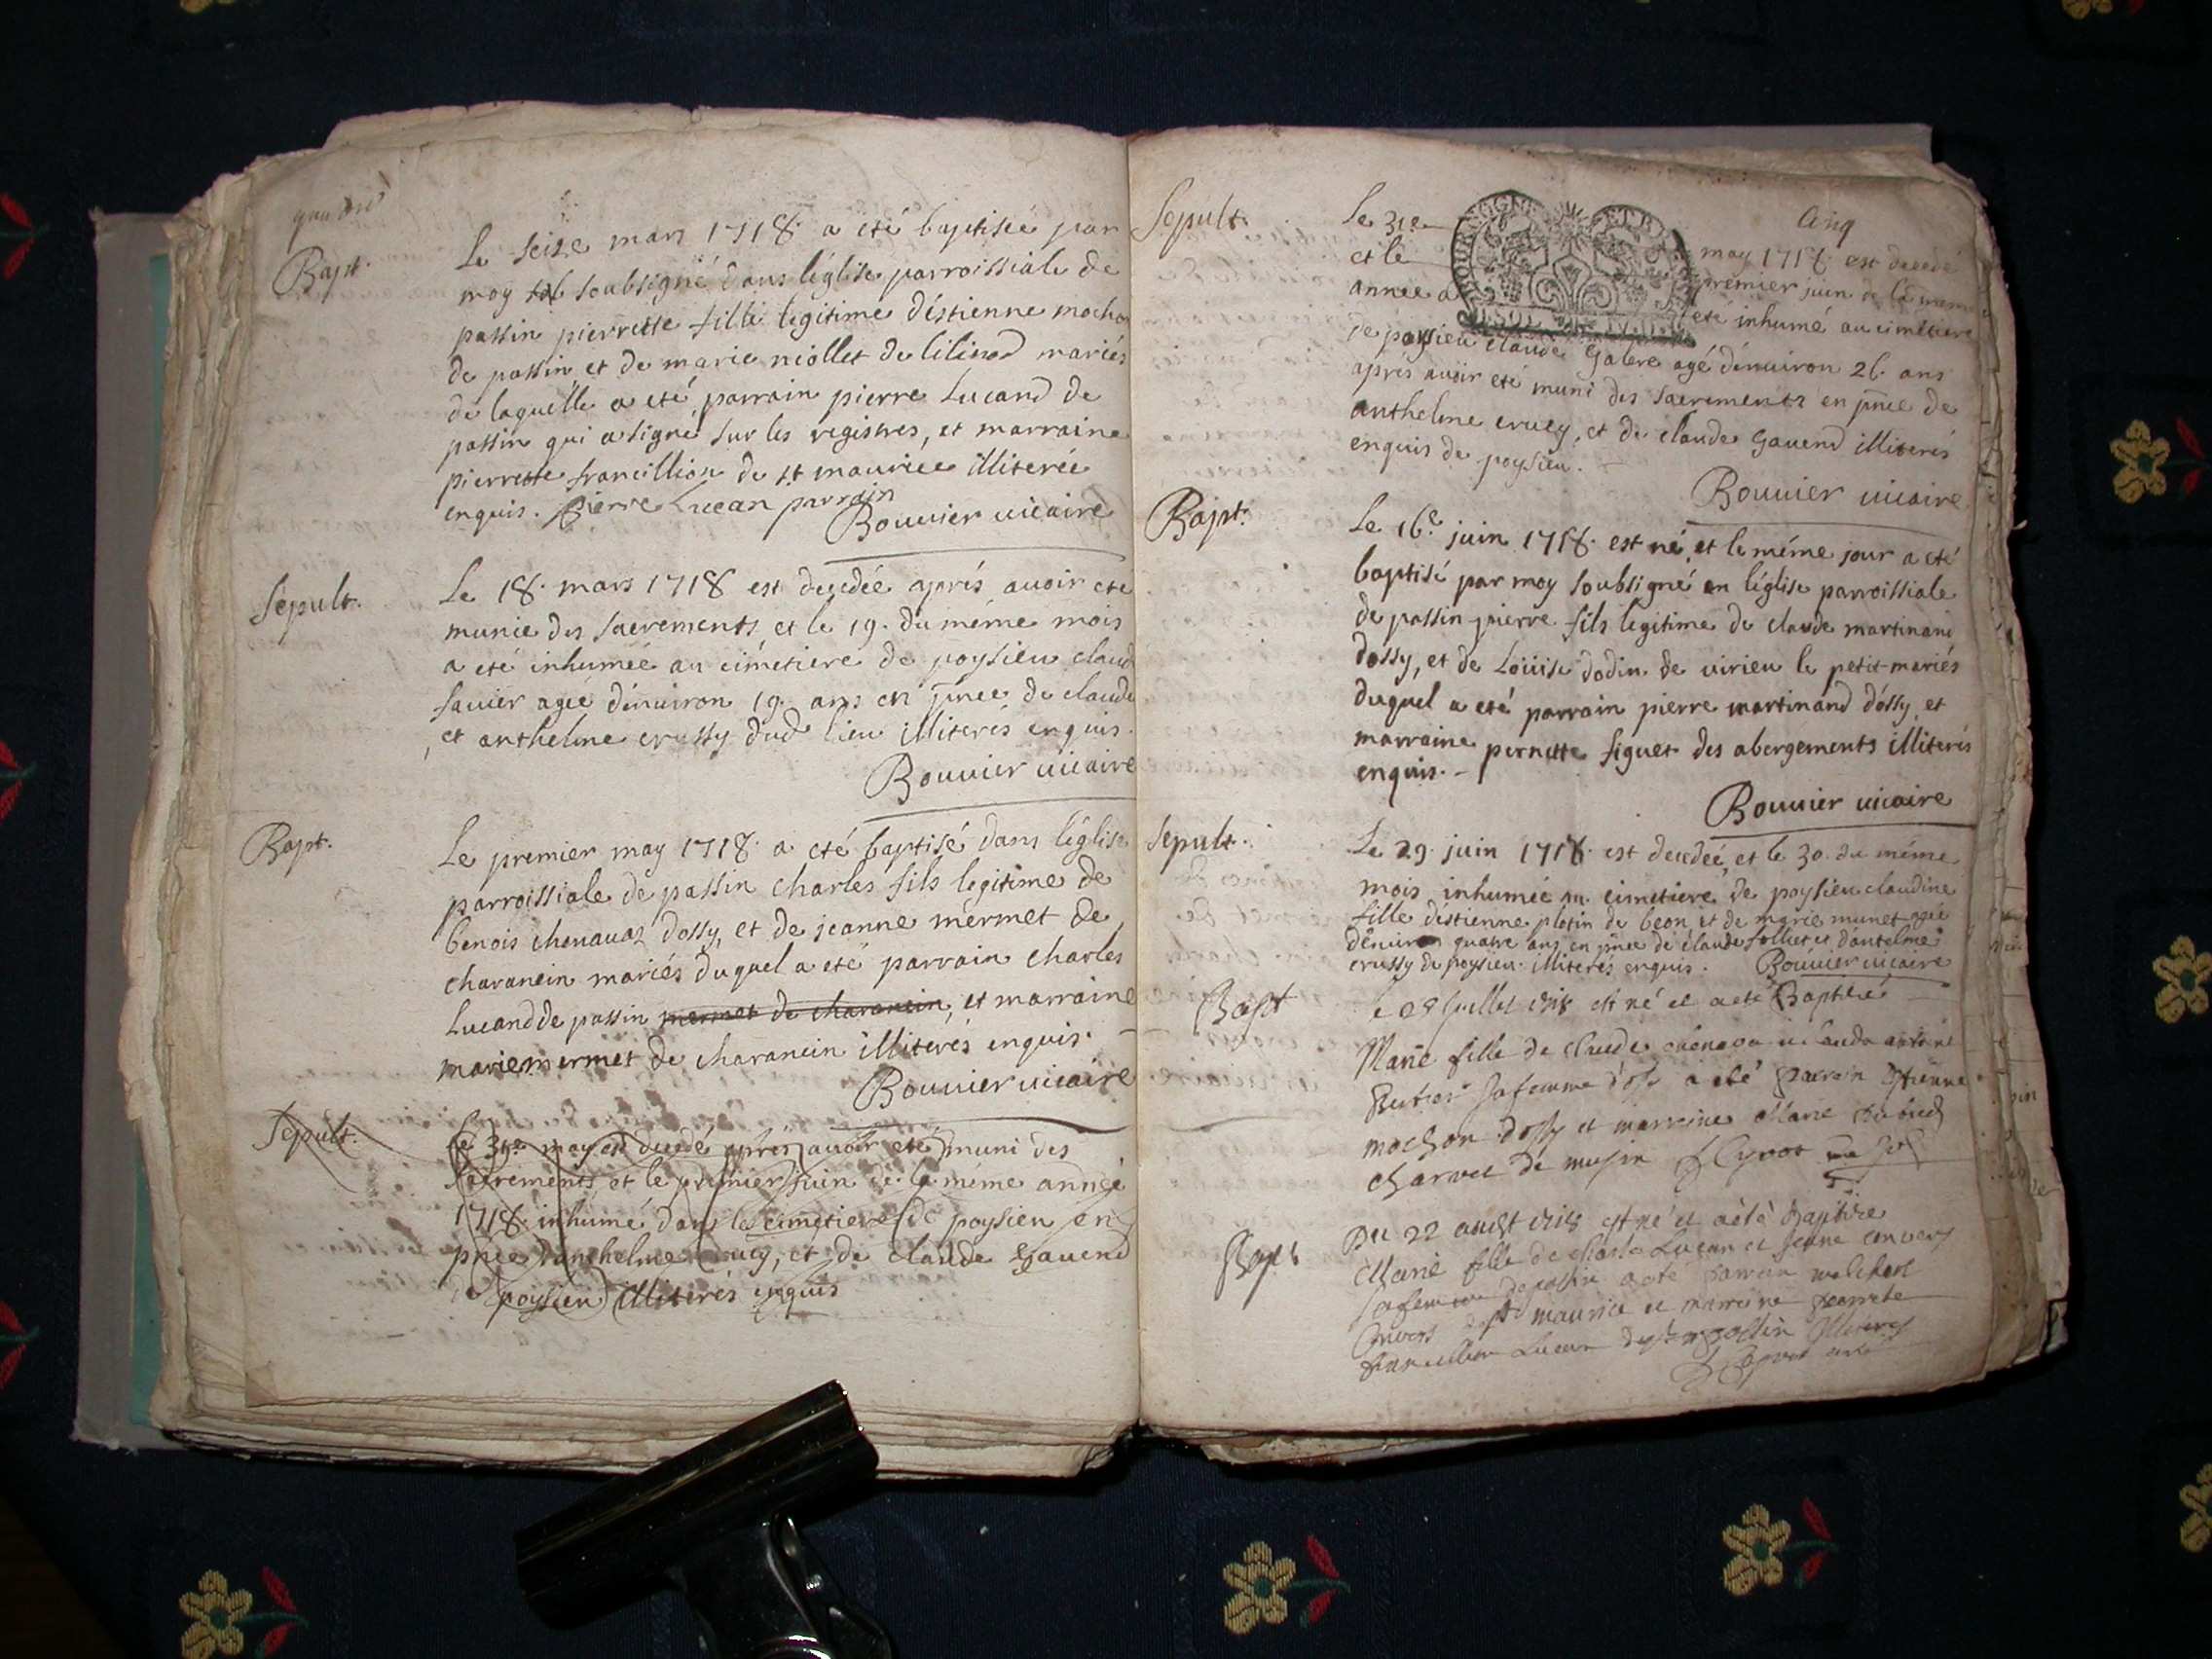 Bapt.
Le seize mars 1718. a été baptisée par
moy soubsigné dans l'église parroissiale de
passin pierrette fille legitime d'éstienne mochon
de passin et de marie niollet de mariés
de laquelle a eté parrain pierre Lucand de
passin qui a signé sur les registres, et marraine
pierrette francillion de st maurice illiterée
enquis. Pierre Lucan parrain
Bouvier vicaire
Sepult.
Le 18. mars 1718 est decedée aprés avoir eté
munie des sacrements et le 19. du méme mois
a eté inhumée au cimetiere de poysieu claud
savier agée d'énviron 19. ans en pñce de claude
et anthelme crussy dud lieu illiterés enquis.
Bouvier vicaire
Bapt.
Le premier may 1718. a eté baptisé dans l'église
parroissiale de passin charles fils legitime de
benois chenavaz d'ossy, et de jeanne mermet de
charancin mariés duquel a eté parrain charles
Lucand de passin mermet de charancin, et marraine
marie mermet de charancin illiterés enquis.
Bouvier vicaire
Sepult.
Le 31e may est decedé aprés avoir eté muni des
sacrements, et le premier juin de la méme année
1718. inhumé dans le cimetiere de poysieu en
pñce d'anthelme crucy, et de claude Gavend
de poysieu illiterés enquis
Cinq
Sepult.
Le 31e may 1718. est decedé
et le premier juin de la meme
année a eté inhumé au cimetiere
de poysieu claude Galere agé d'énviron 26. ans
apres avoir eté muni des sacrements en pñce de
anthelme crucy, et de claude Gavend illiterés
enquis de poysieu.
Bouvier vicaire
Bapt.
Le 16e. juin 1718. est né, et le méme jour a eté
baptisé par moy soubsigné en l'église parroissiale
de passin pierre fils legitime de claude martinand
d'ossy, et de Loüise dodin de virieu le petit mariés
duquel a eté parrain pierre martinand d'óssy, et
marraine pernette figuet des abergements illiterés
enquis.
Bouvier vicaire
Sepult.
Le 29. juin 1718. est decedeé, et le 30. du méme
mois inhumée au cimetiere de poysieu claudine
fille d'éstienne platin de beon et de marie munet ageé
d'énviron quatre ans en pñce de claude folliet et d'antelme
crussy de poysieu illiterés enquis. Bouvier vicaire
Bapt
Le 28 Juillet 1718 est né et a eté Baptisé
Marie fille de Claude chenava
sa femme d'ossy a eté parrain Etienne
mochon d'ossy et marraine Marie
charvet de musin
Bapt
Du 22 aoust 1718 est né et a été Baptisée
Marie fille de Charle Lucan et Jeanne Anvers
sa femme de passin a eté parrain melchert
Anvers de st maurice et marraine pierrete
francillion Lucan de passin Illiteres